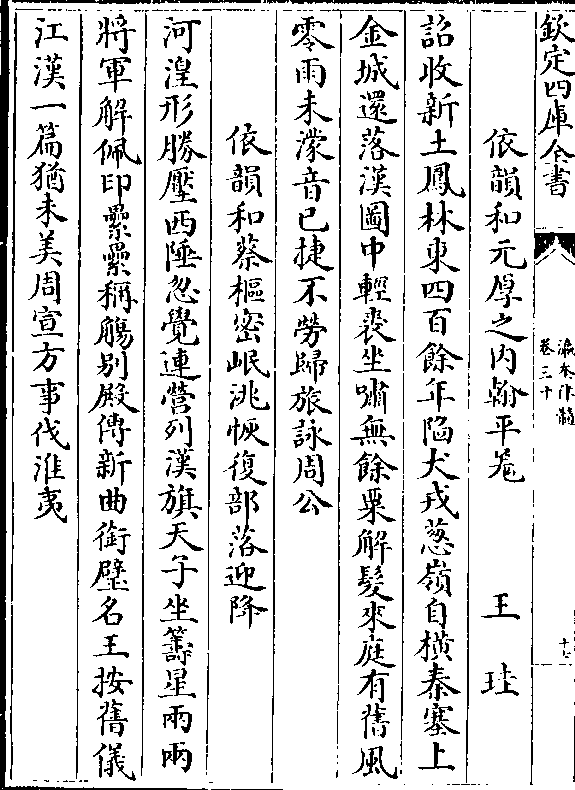 欽定四庫全書
瀛奎律髓
卷三十
依韻和元厚之内翰平羌
王珪
詔收新土鳳林東四百餘年陷犬戎葱嶺自横秦塞上
金城還落漢圖中輕裘坐嘯無餘粟解髮來庭有舊風
零雨未濛音已捷不勞歸旅詠周公
依韻和蔡樞密岷洮恢復部落迎降
河湟形勝壓西陲忽覺連營列漢旗天子坐籌星兩兩
將軍解佩印纍纍稱觴别殿傳新曲銜璧名王按舊儀
江漢一篇猶未美周宣方事伐淮夷